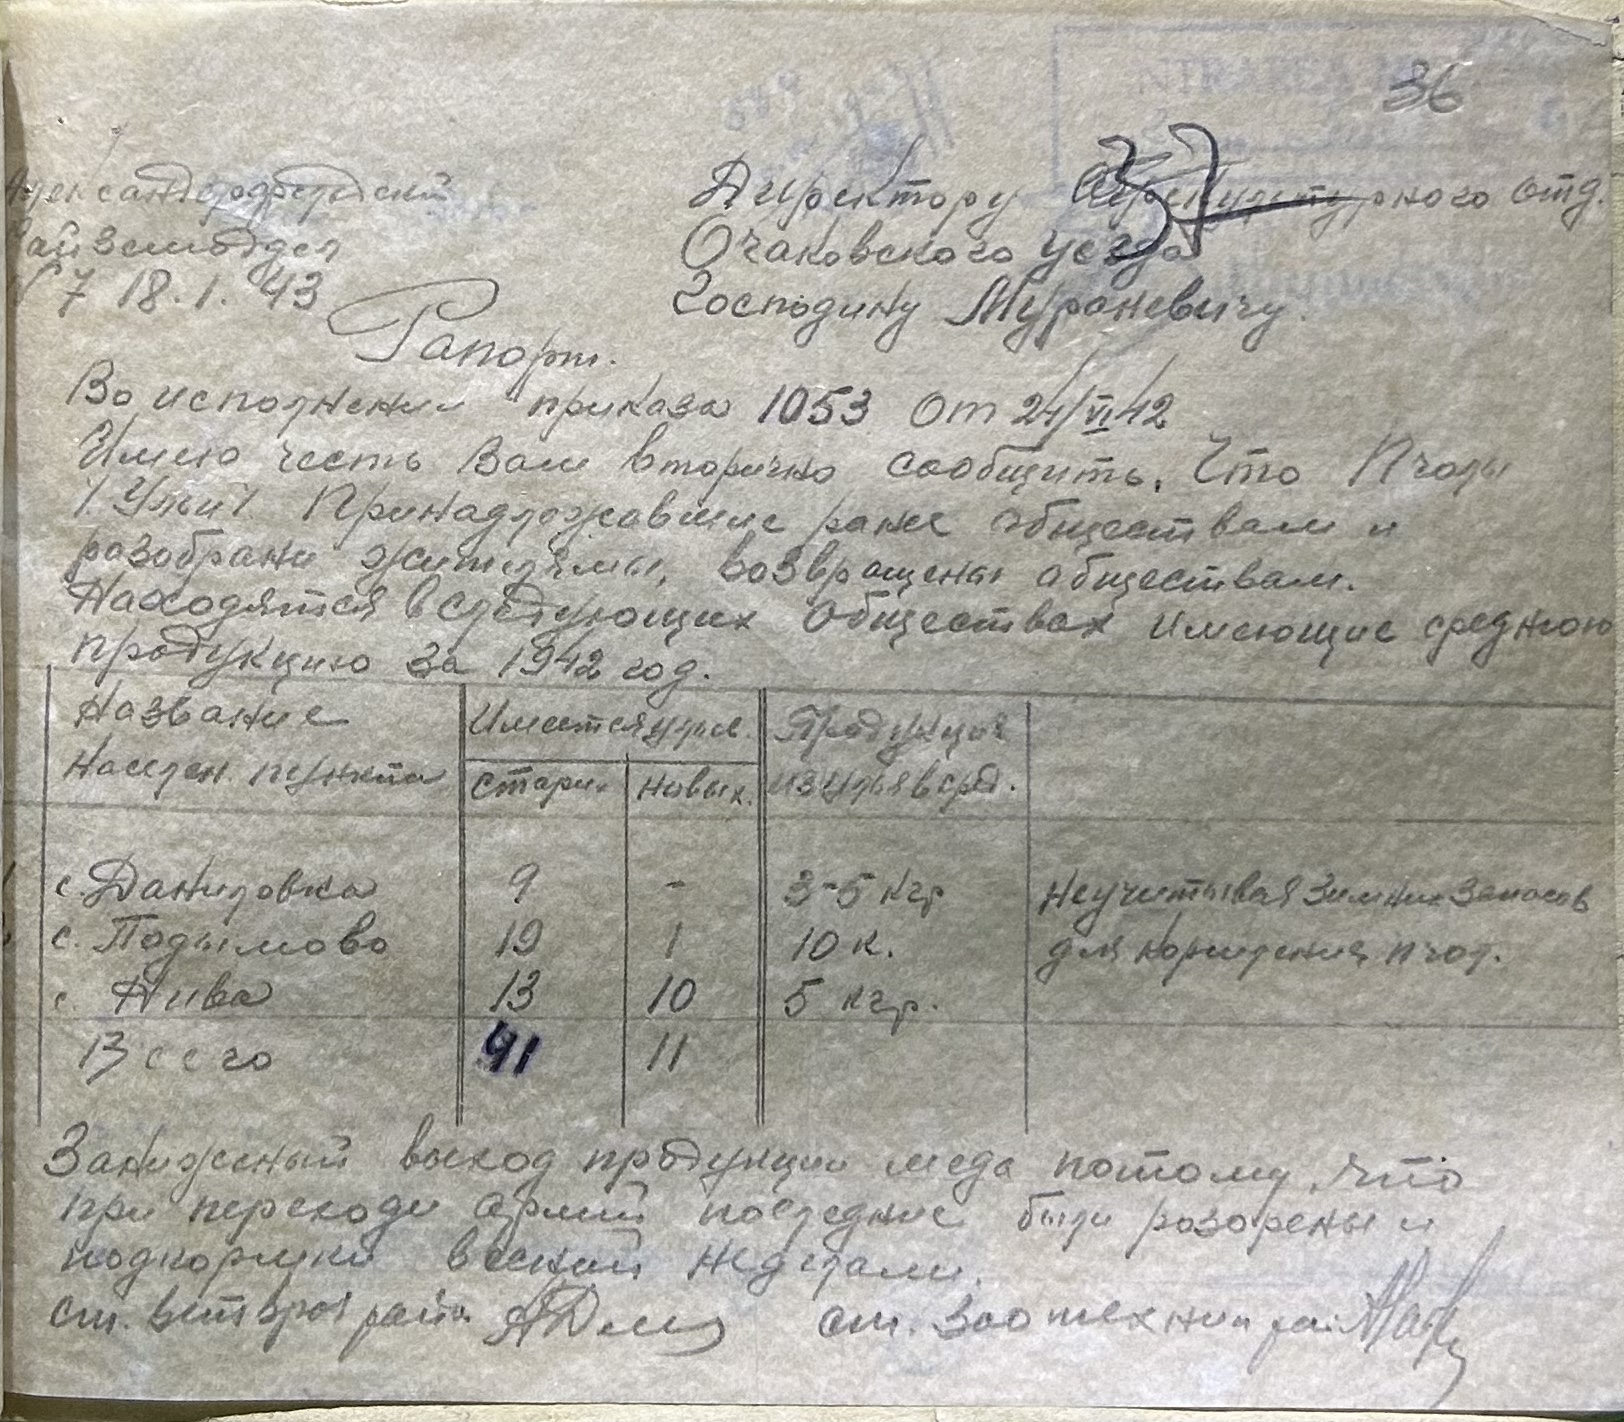 36
37
Александерфертский
Райземотдел
№ 7 18.1.43
Директору Агрикультурного отд.
Очаковского уезда
Господину Мураневичу.
Рапорт.
Во исполнении приказа 1053 от 24/VI 42
Имею честь Вам вторично сообщить, Что Пчолы
/.Ульи/. Принадлежавшие ранее обществам и
разобрани жителямы, возвращены обществам.
Находятся в следующих Обществах имеющие среднюю
продукцию за 1942 год.
Название Имеется ульев. Продукция
Населен. пункта стары. новых. из улья в сред.
с. Даниловка 9 - 3-5 кгр неучитывая зимних запасов
с. Подымово 19 1 10 к. для кормления пчол.
с. Нива 13 10 5 кгр.
Всего 41 11
Заниженный выход продукции меда потому, что
при переходи армий последние были розорены и
подкормки весной неделали.
ст. ветврач райн. ст. Зоотехник рай.